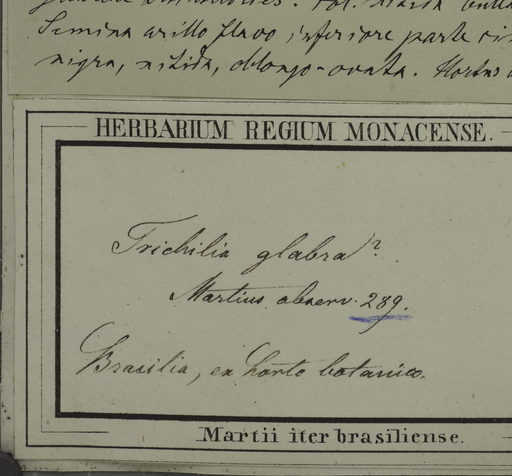 Semina arillo flavo inferiore parte
nigra, nitida, oblongo-ovata. Hortus
HERBARIUM REGIUM MONACENSE.
Trichilia glabra?
Martius observ. 289.
Brasilia, ex horto botanico.
Martii iter brasiliense.